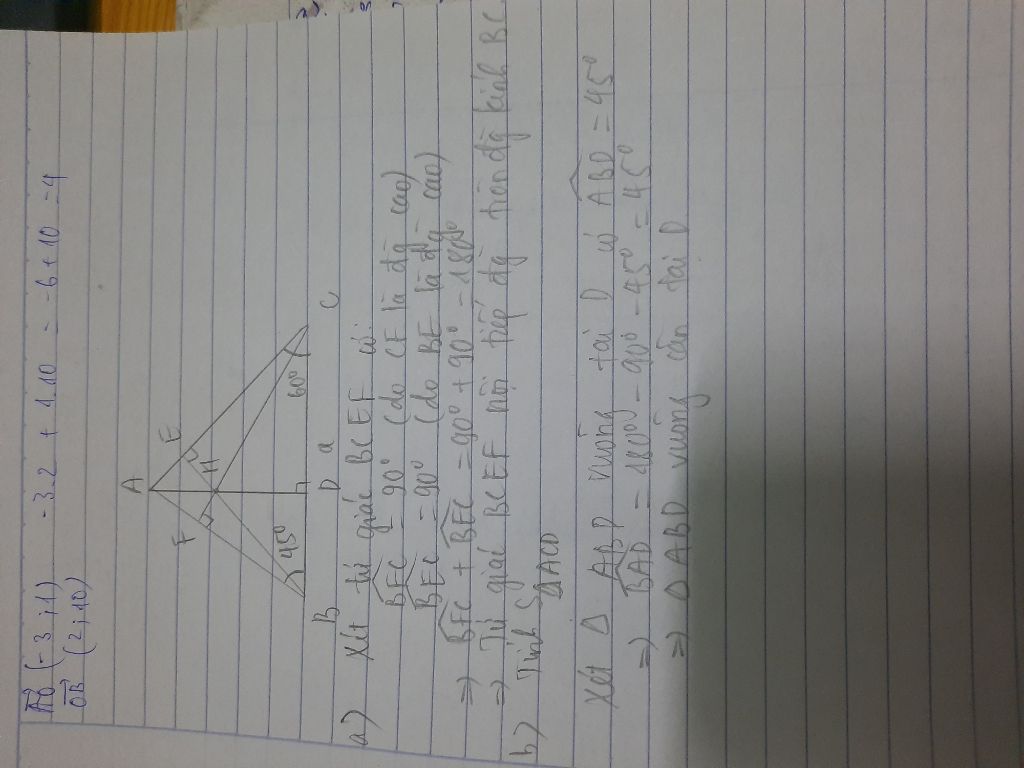 AO (-3;1) -3.2 + 1.10 = -6+10 = 4
OB (2;10)
A
F
E
H
45°
60°
B D a C
a) Xét tứ giác BCEF có:
BFC = 90° (do CF là đg cao)
BEC = 90° (do BE là đg cao)
=> BFC + BEC = 90° + 90° = 180°
=> Tứ giác BCEF nội tiếp đg tròn đg kính BC
b) Tính S ΔACD
Xét Δ ABD vuông tại D có ABD = 45°
=> BAD = 180° - 90° - 45° = 45°
=> Δ ABD vuông cân tại D